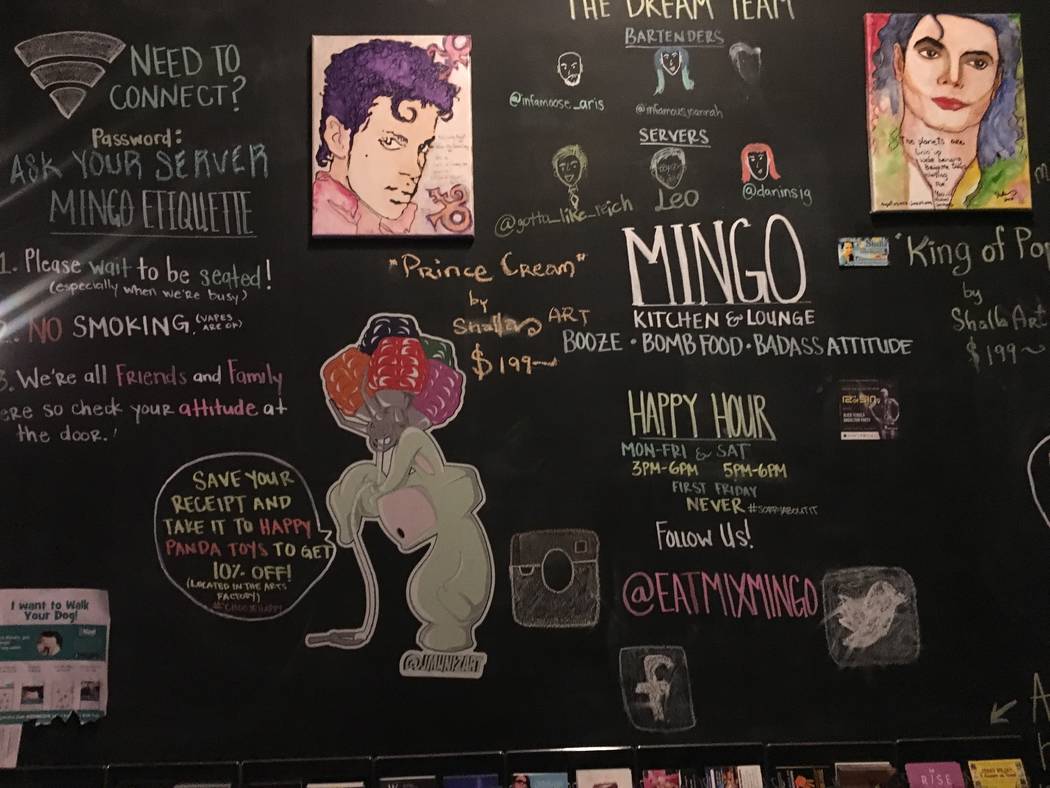 NEED TO
CONNECT?
Password:
ASK YOUR SERVER
MINGO ETIQUETTE
1. Please wait to be seated!
(especially when we're busy)
NO SMOKING. (VAPES
ARE OK)
3. We're all Friends and Family
ere so check your attitude at
the door.!
SAVE YOUR
RECEIPT AND
TAKE IT TO HAPPY
PANDA TOYS TO GET
10% OFF!
(LOCATED IN THE ARTS
FACTORY)
#CHOOSEHAPPY
I want to Walk
Your Dog!
"Prince Cream"
by
Shalla ART
$199
@JMUNIZART
THE DREAM TEAM
BARTENDERS
@infamoose_aris
@infamousjhannah
SERVERS
@gotta_like_reich
Leo
@daninsig
MINGO
KITCHEN & LOUNGE
BOOZE • BOMB FOOD • BADASS ATTITUDE
HAPPY HOUR
MON-FRI & SAT
3PM-6PM 5PM-6PM
FIRST FRIDAY
NEVER #SORRYABOUTIT
Follow Us!
@EATMIXMINGO
f
The planets are
lining up
"King of Pop
by
Shalla Art
$199
A
RISE